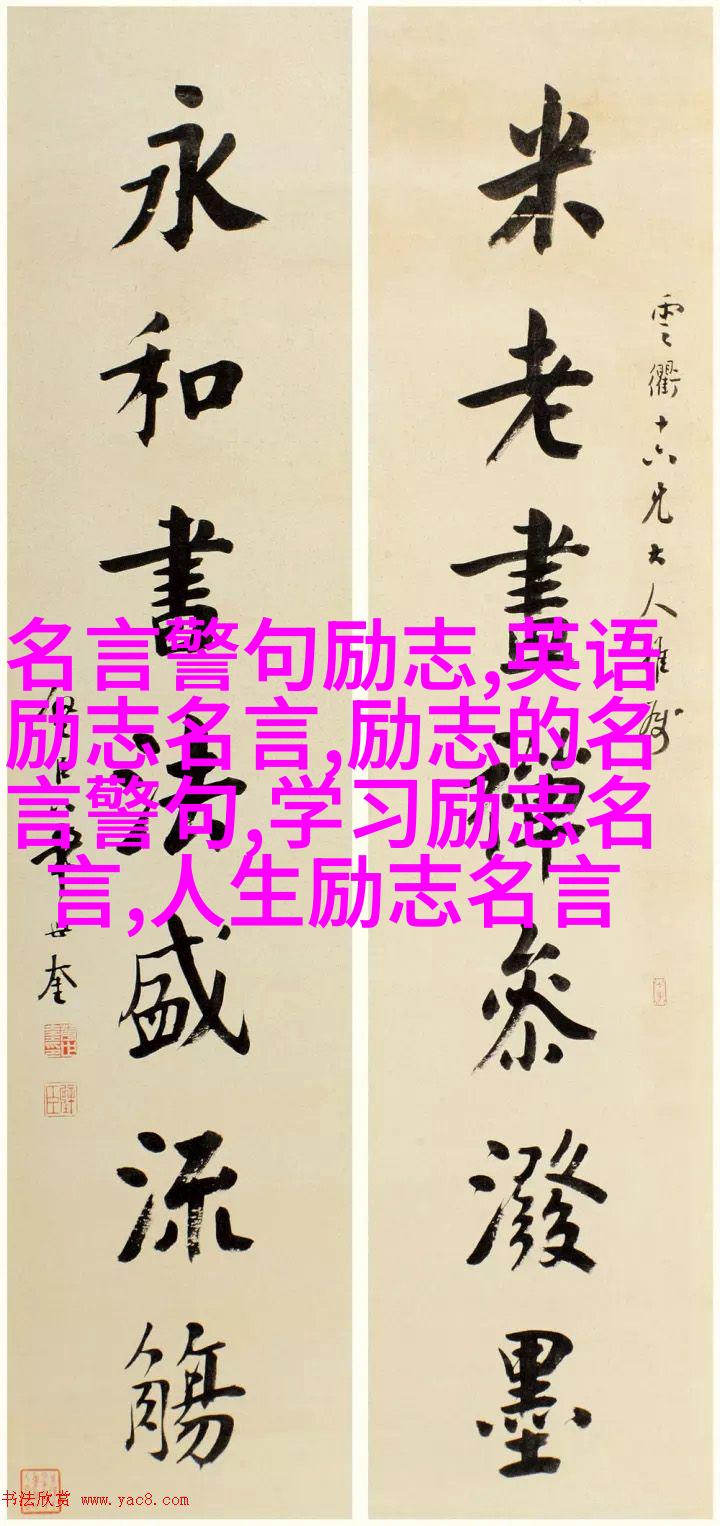 雲衢十六兄大人雅屬
米老畫禪參潑墨
永和書法盛流觴
世奎
名言警句励志,英语
励志名言,励志的名
言警句,学习励志名
言,人生励志名言
书法欣赏 www.yac8.com